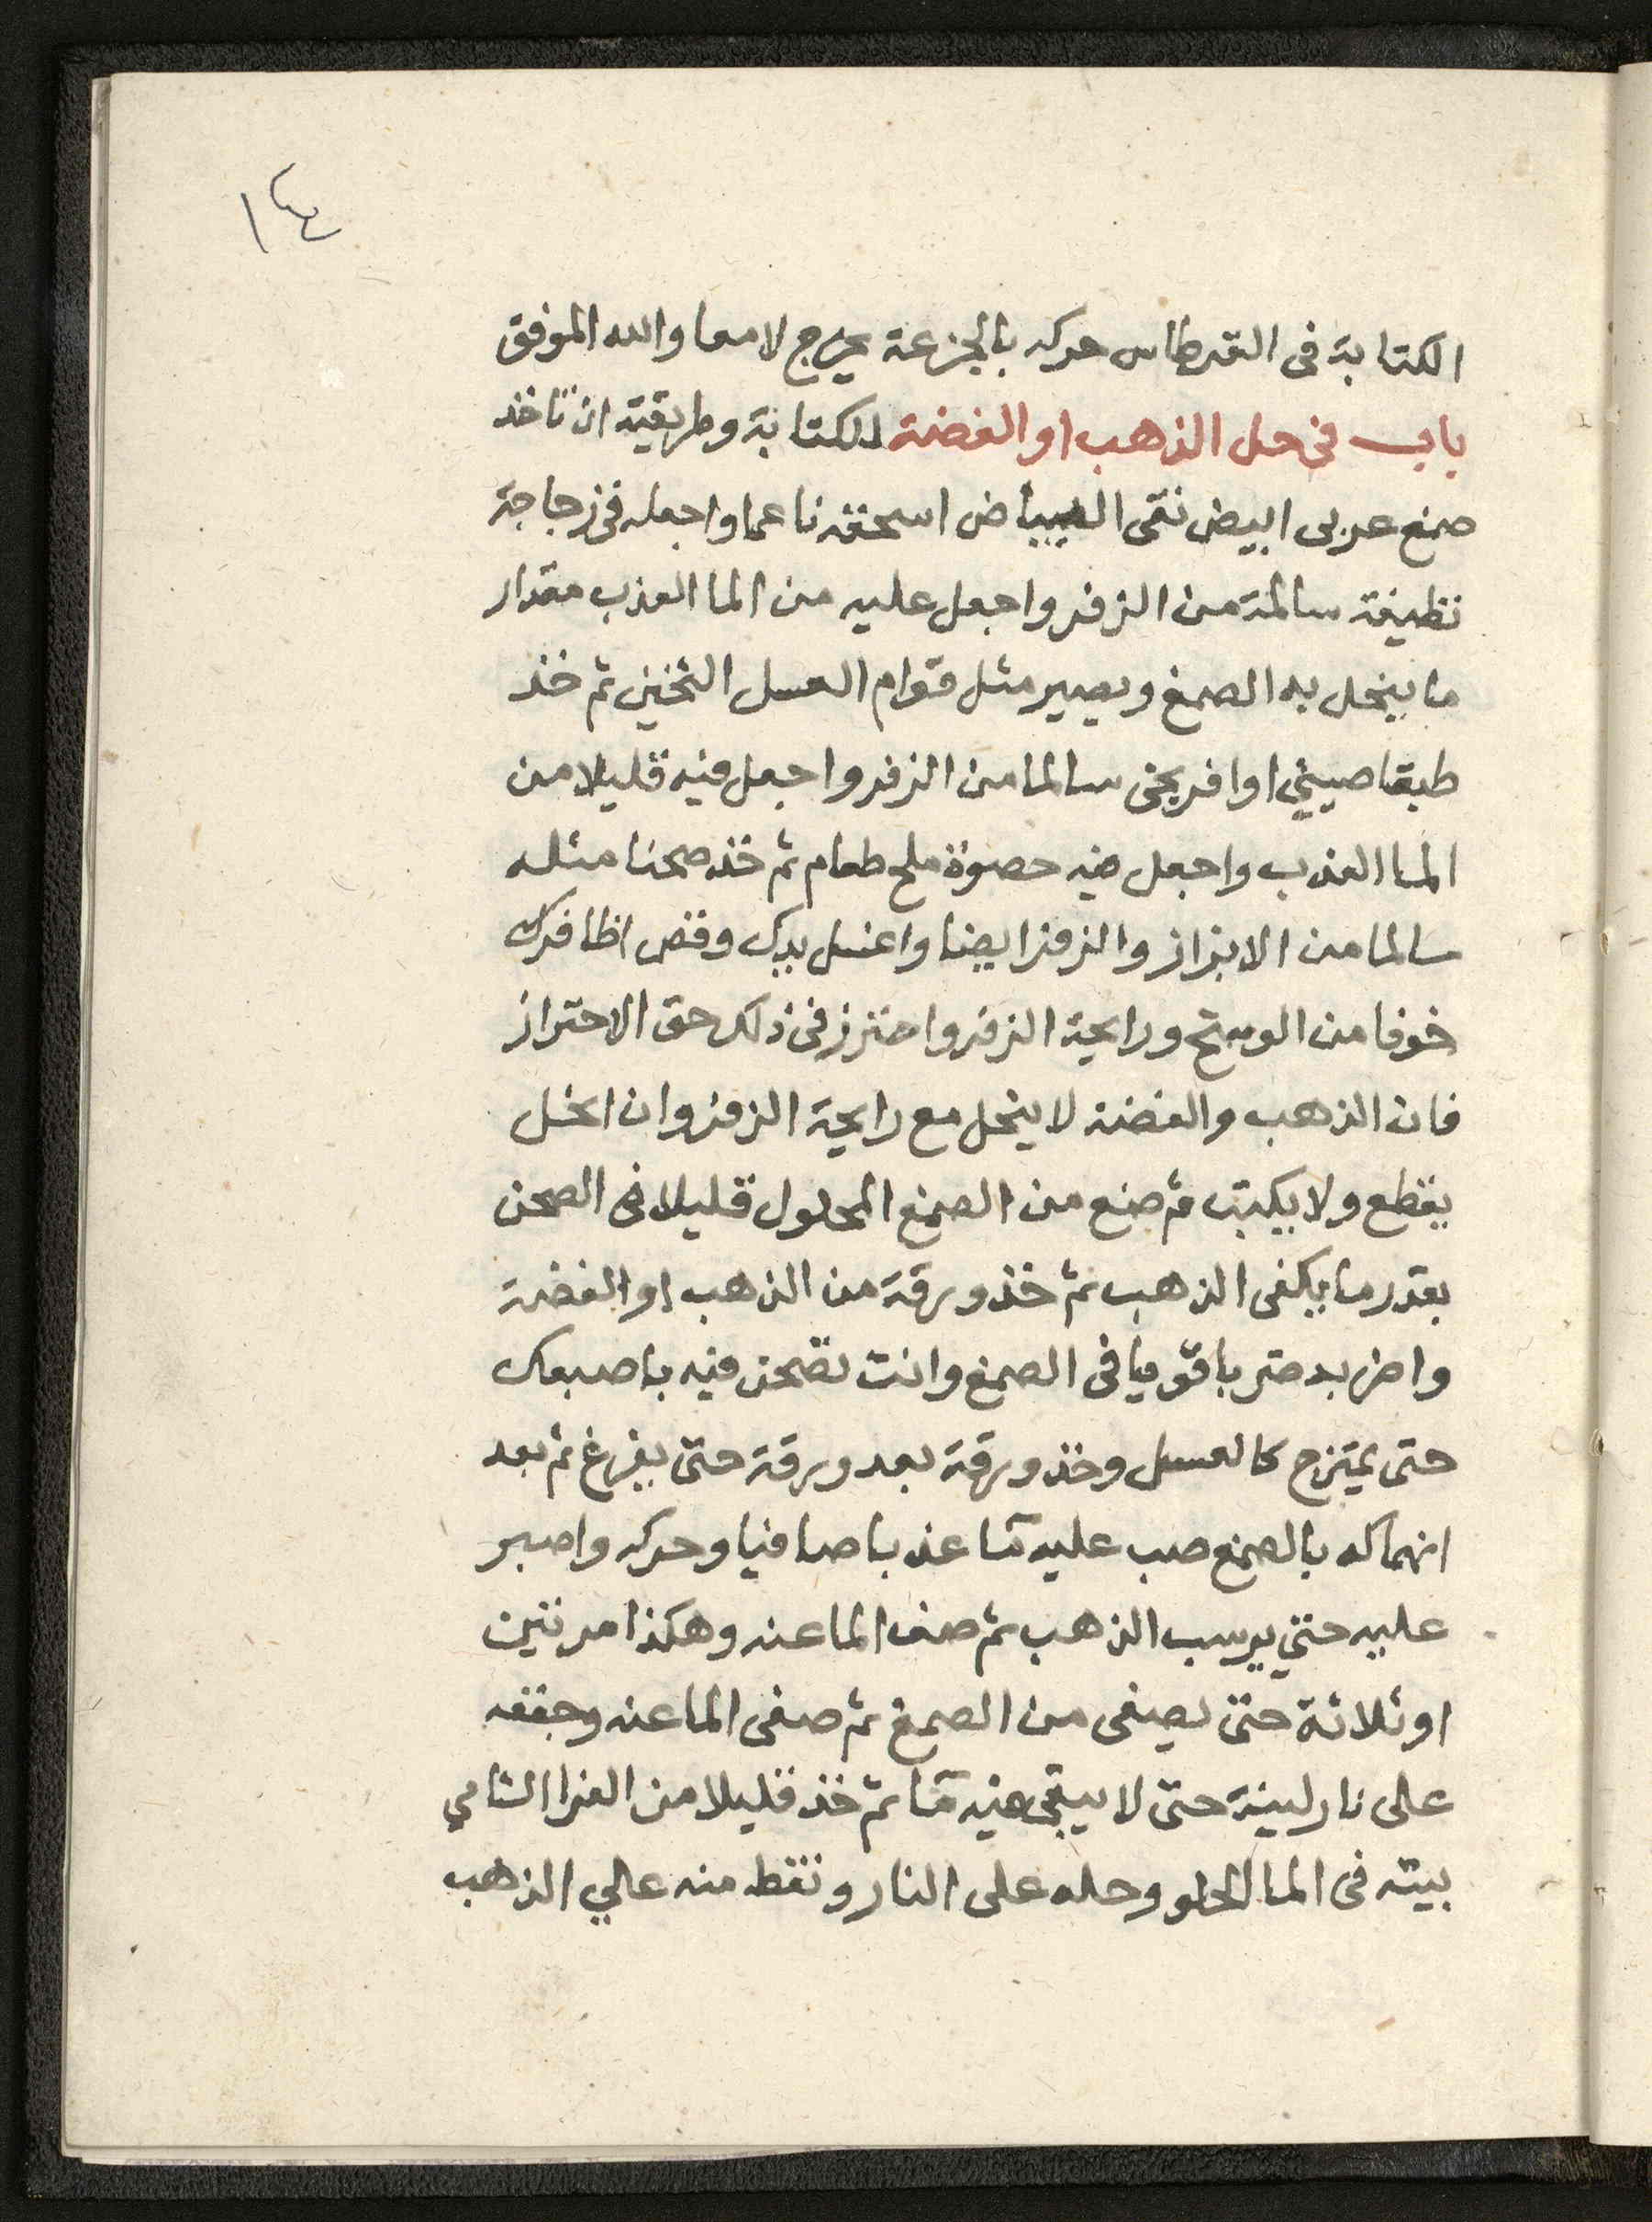 ١٤
الكتابة فى القرطاس حركه بالجزعة يخرج لامعا والله الموفق
باب فى حل الذهب او الفضة للكتابة وطريقته ان تاخذ
صمغ عربى ابيض نقى البياض اسحقه ناعما واجعله فى زجاجة
نظيفة سالمة من الزفر واجعل عليه من الما العذب مقدار
ما ينحل به الصمغ ويصير مثل قوام العسل الثخين ثم خذ
طبقا صينى او افرنجى سالما من الزفر واجعل فيه قليلا من
الما العذب واجعل فيه حصوة ملح طعام ثم خذ صحنا مثله
سالما من الابزاز والزفر ايضا واغسل يدك وقص اظافرك
خوفا من الوسخ ورايحة الزفر واحترز فى ذلك حق الاحتراز
فان الذهب والفضة لا ينحل مع رايحة الزفر وان انحل
يقطع ولا يكتب ثم ضع من الصمغ المحلول قليلا فى الصحن
بقدر ما يكفى الذهب ثم خذ ورقة من الذهب او الفضة
واضربه ضربا قويا فى الصمغ وانت تضحن فيه باصبعك
حتى يمتزج كالعسل وخذ ورقة بعد ورقة حتى يفرغ ثم بعد
انهماكه بالصمغ صب عليه مآ عذبا صافيا وحركه واصبر
عليه حتى يرسب الذهب ثم صف الما عنه وهكذا مرتين
او ثلاثة حتى يصفى من الصمغ ثم صفى الما عنه وجففه
على نار لينة حتى لا يبقى فيه مآ ثم خذ قليلا من الغرا الشامي
بيته فى الما الحلو وحله على النار ونقط منه علي الذهب